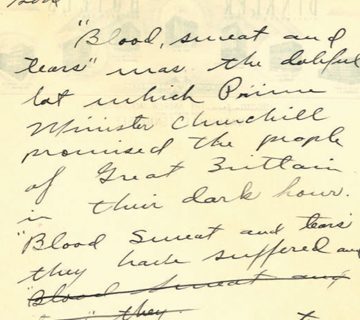 "Blood, sweat and
tears" was the doleful
lot which Prime
Minister Churchill
promised the people
of Great Brittain
in their dark hour.
"Blood Sweat and tears
they have suffered and
"Blood Sweat and
" they